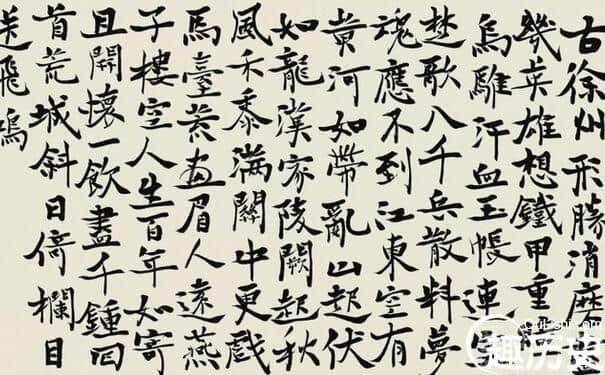 古徐州形勝消磨
幾英雄想鐵甲重
烏騅汗血玉帳連
楚歌八千兵散料夢
魂應不到江東空有
黄河如帶亂山起伏
如龍漢家陵闕起秋
風禾黍滿關中更戲
馬臺荒畫眉人遠燕
子樓空人生百年如寄
且開懷一飲盡千鍾回
首荒城斜日倚欄目
送飛鴻
趣历史